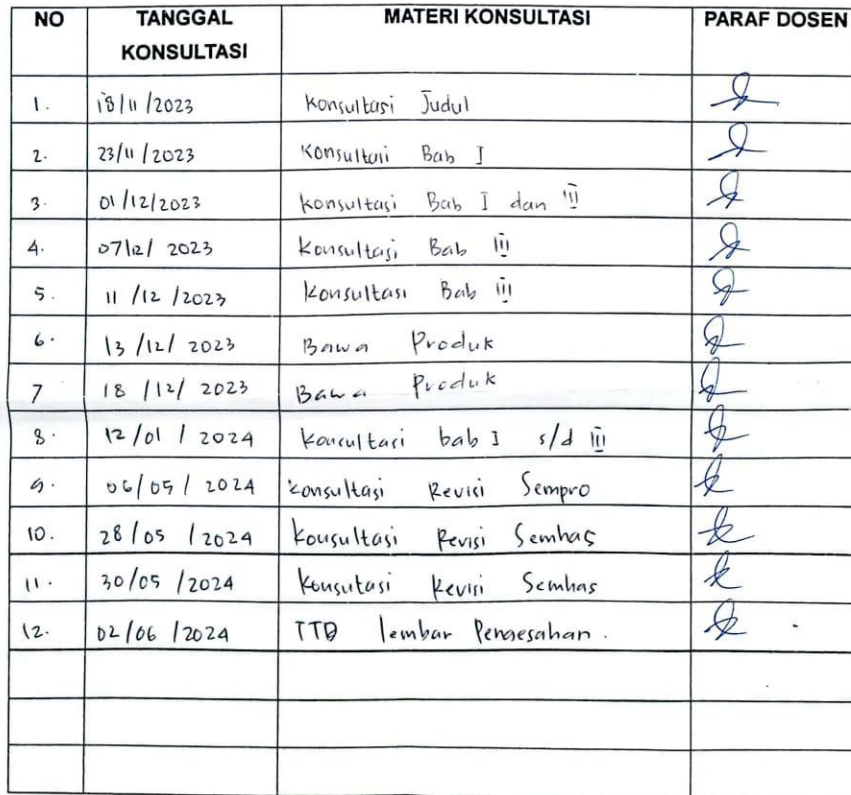 NO TANGGAL KONSULTASI MATERI KONSULTASI PARAF DOSEN
1. 18/11/2023 Konsultasi Judul
2. 23/11/2023 Konsultasi Bab I
3. 01/12/2023 Konsultasi Bab I dan II
4. 07/12/2023 Konsultasi Bab III
5. 11/12/2023 Konsultasi Bab III
6. 13/12/2023 Bawa Produk
7 18/12/2023 Bawa Produk
8. 12/01/2024 Konsultasi bab I s/d III
9. 06/05/2024 Konsultasi Revisi Sempro
10. 28/05/2024 Konsultasi Revisi Semhas
11. 30/05/2024 Konsutasi Revisi Semhas
12. 02/06/2024 TTD lembar Pengesahan.